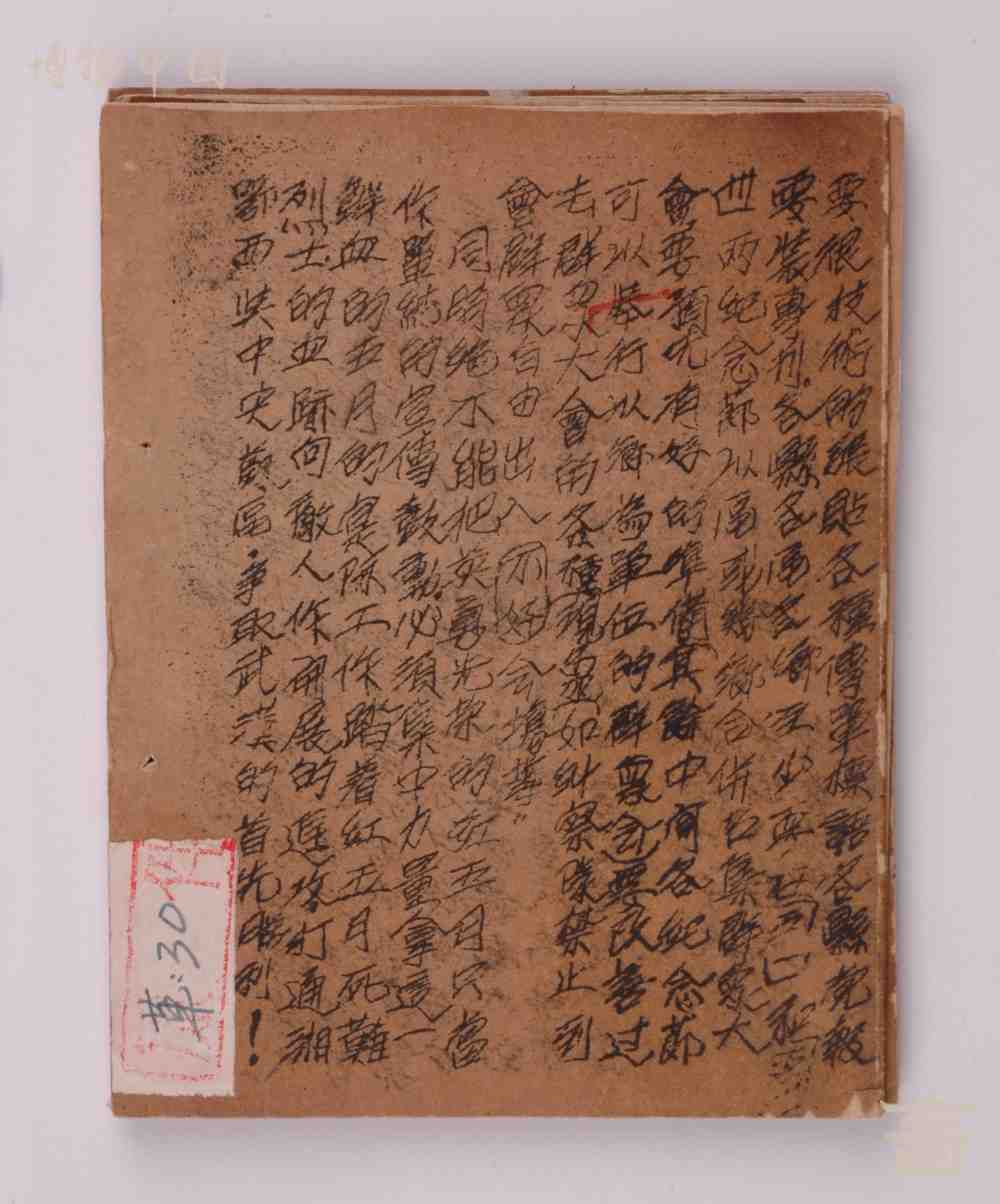 博物中国
要很技術的張貼各種傳單標語各縣党報
要裝專刊.各縣各區各鄉至少要
世兩紀念節以區或幾鄉合併召集群眾大
會要預先有好的準備其餘中間各紀念節
可以举行以鄉為單位的群眾会要改善過
去群众大會的各種現象如糾察隊禁止到
會群眾自由出入不好会場等
同時絕不能把英勇光榮的紅五月只當
作單純的宣傳鼓動必須集中力量拿這一
鮮血的五月的實際工作踏着紅五月死難
烈士的血跡向敵人作開展的進攻打通湘
鄂西與中央蘇區.爭取武漢的首先勝利!
革:30